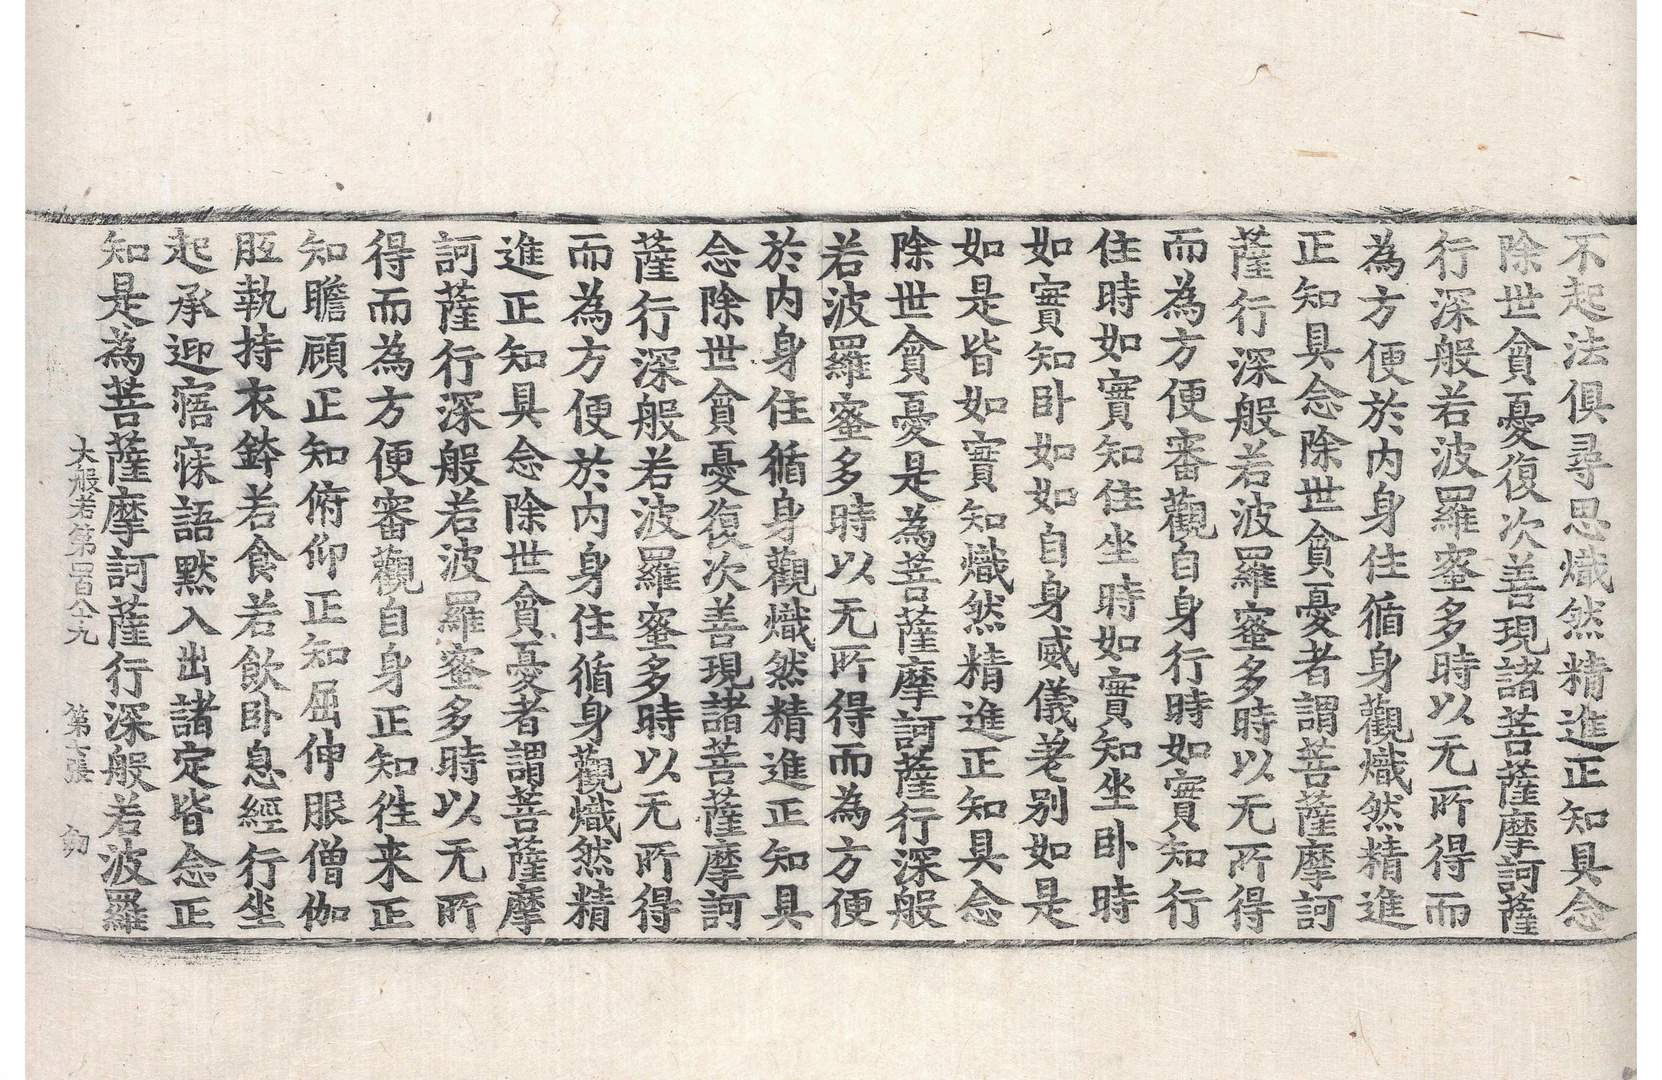 不起法俱尋思熾然精進正知具念
除世貪憂復次善現諸菩薩摩訶薩
行深般若波羅蜜多時以无所得而
為方便於内身住循身觀熾然精進
正知具念除世貪憂者謂菩薩摩訶
薩行深般若波羅蜜多時以无所得
而為方便審觀自身行時如實知行
住時如實知住坐時如實知坐卧時
如實知卧如如自身威儀差别如是
如是皆如實知熾然精進正知具念
除世貪憂是為菩薩摩訶薩行深般
若波羅蜜多時以无所得而為方便
於内身住循身觀熾然精進正知具
念除世貪憂復次善現諸菩薩摩訶
薩行深般若波羅蜜多時以无所得
而為方便於内身住循身觀熾然精
進正知具念除世貪憂者謂菩薩摩
訶薩行深般若波羅蜜多時以无所
得而為方便審觀自身正知往来正
知瞻顧正知俯仰正知屈伸服僧伽
胝執持衣鉢若食若飲卧息經行坐
起承迎寤寐語默入出諸定皆念正
知是為菩薩摩訶薩行深般若波羅
大般若第四百八十九 第七張